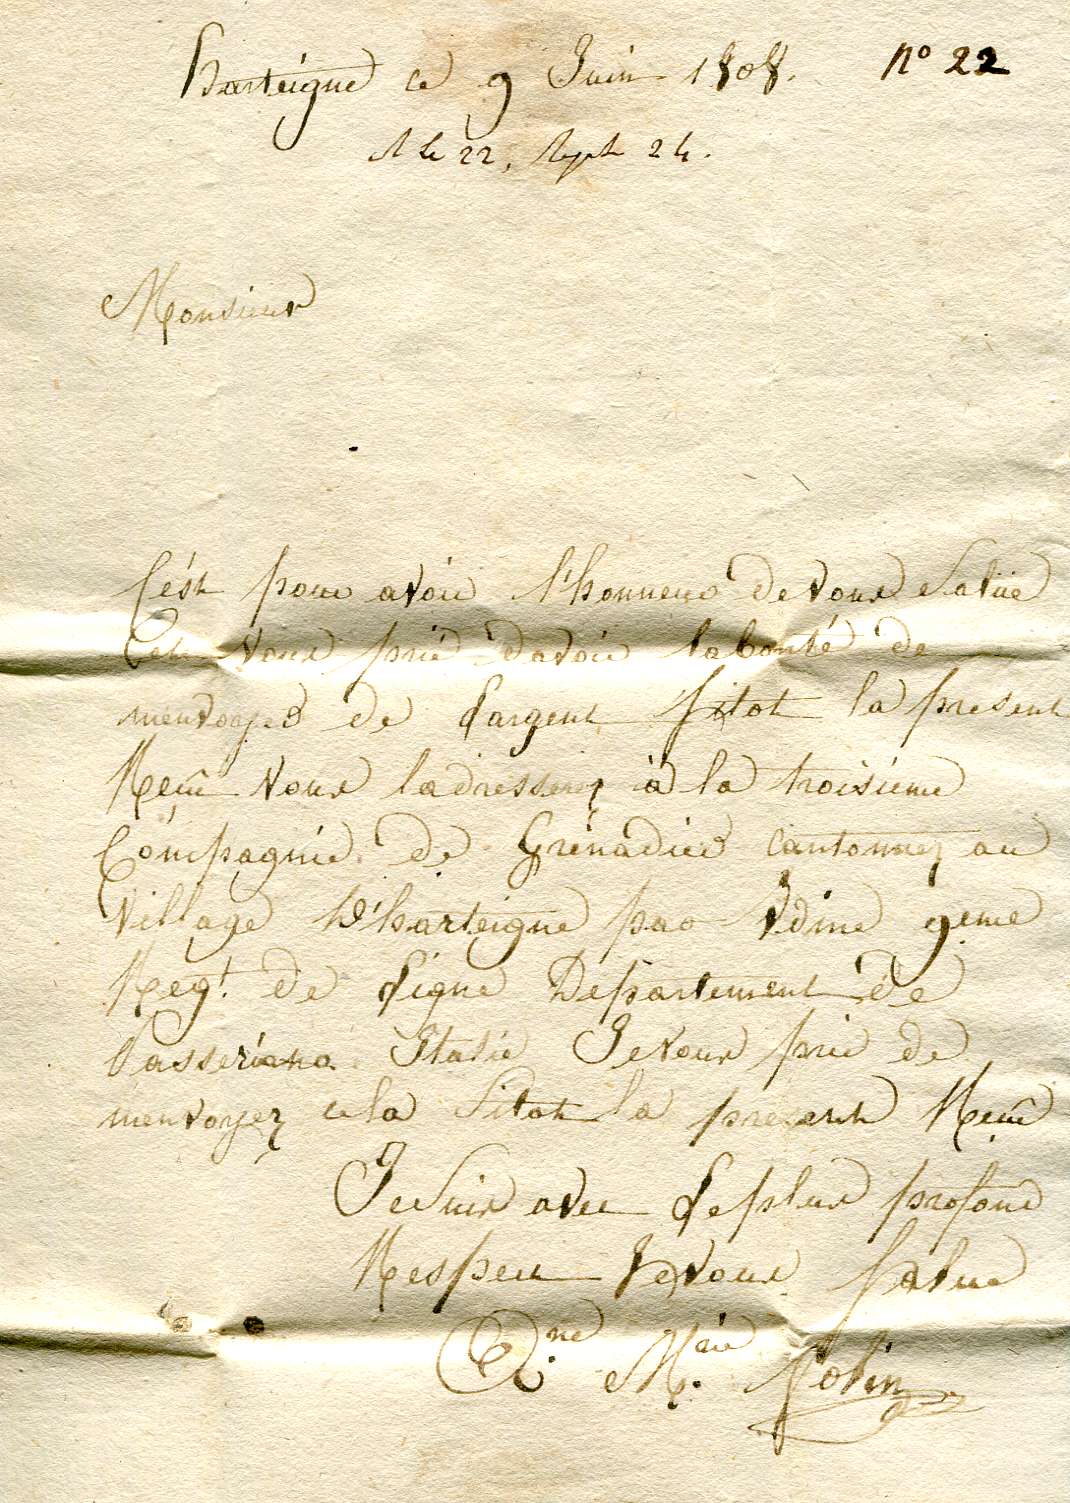 harteigne ce 9 Juin 1808. N° 22
R le 22, Rep le 24.
Monsieur
C'ést pour avoir l'honneur de vous Salüé
Et vous prié d'avoir la bonté de
menvoyer de l'argent sitot la present
Reçüe vous ladresserez à la troisieme
Compagnie de Grénadier Cantonnez au
village D'harteigne par Udine 9eme
Regt. de Ligne Département de
Passeriana Italie Je vous prie de
menvoyez cela Sitot la present Reçüe
Je Suis avec le plus profond
Respect Je vous Salue